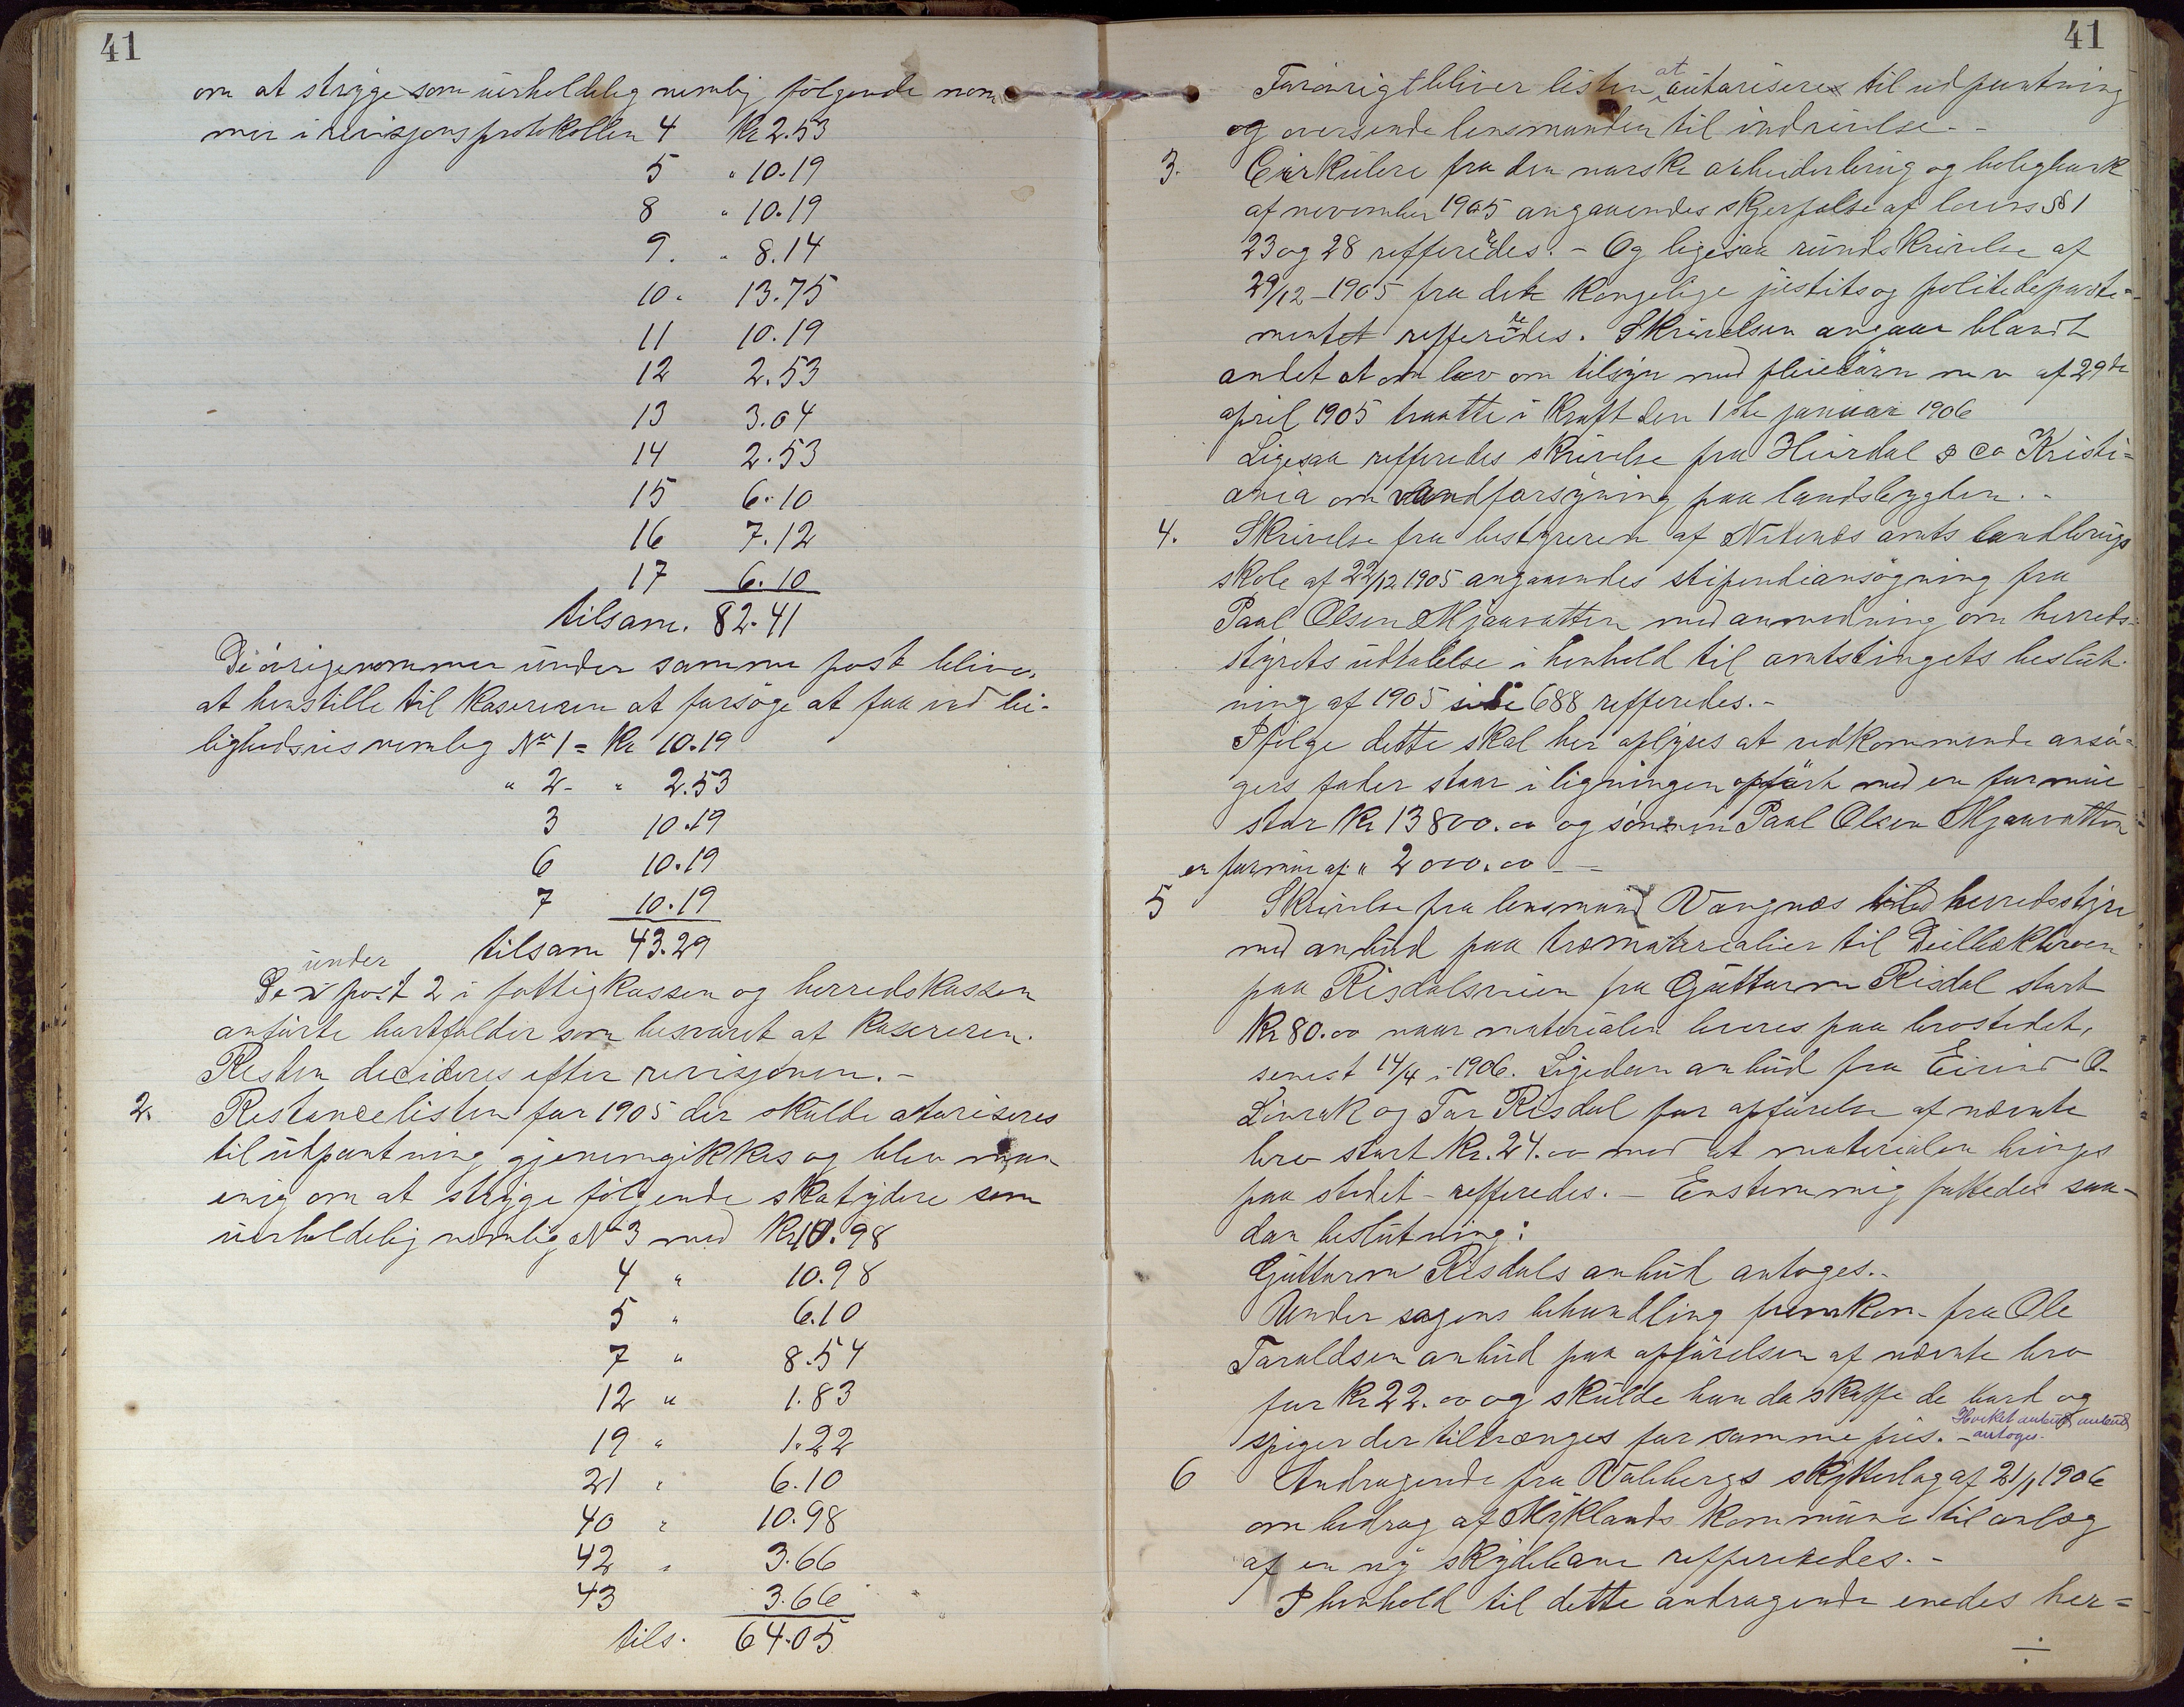 41
om at stryge som uerholdelig nemlig følgende nom
mer i revisjonsprotokollen 4 Kr 2.53
5 " 10.19
8 " 10.19
9. " 8.14
10 " 13.75
11 10.19
12 2.53
13 3.04
14 2.53
15 6.10
16 7.12
17 6.10
tilsam. 82.41
De øvrige nommer under samme post bliver
at henstille til Kasereren at forsøge at faa ind lei-
lighedsvis nemlig No 1 = Kr 10.19
" 2 - " 2.53
3 10.19
6 10.19
7 10.19
tilsam 43.29
De under post 2 i fattigkassen og herredskassen
anførte bortfalder som besvaret af Kasereren.
Resten decideres efter revisjonen. -
2. Restancelisten for 1905 der skulde atoriseres
til udpantning gjenemgikkes og blev man
enig om at stryge følgende skatydere som
uerholdelig nemlig No 3 med Kr 10.98
4 " 10.98
5 " 6.10
7 " 8.54
12 " 1.83
19 " 1.22
21 " 6.10
40 " 10.98
42 " 3.66
43 3.66
tils. 64.05
41
Forøvrigt bliver listen at autorisere til udpantning
og oversende lensmanden til inddrivelse. -
3. Cirkulere fra den norske arbeiderbrug og boligbank
af november 1905 angaaendes skjerpelse af lovens § 1
23 og 28 refferedes. - Og ligesaa rundskrivelse af
29/12 - 1905 fra det Kongelige justits og politideparte-
mentet refferedes. Skrivelsen angaar blandt
andet at lov om tilsyn med pleiebørn m v af 29de
april 1905 traatte i Kraft den 1ste januar 1906
Ligesaa refferedes skrivelse fra Heirdal & Co Kristi=
ania om vandforsyning paa landsbygden. -
4. Skrivelse fra bestyreren af Nedenæs amts landbrugs
skole af 22/12 1905 angaaendes stipendiansøgning fra
Paul Olsen Mjaavatten med anmodning om herreds-
styrets udtalelse i henhold til amtstingets beslut-
ning af 1905 side 688 refferedes. -
I følge dette skal her oplyses at vedkommende ansø-
gers fader staar i ligningen opført med en formue
stor Kr 13800.00 og sønnen Paul Olsen Mjaavatten
en formue af " 2000.00 - -
5 Skrivelse fra lensmand Vangnæs til herredsstyre
med anbud paa træmaterialier til Deilbækbroen
paa Risdalsveien fra Guttorm Risdal stort
Kr 80.00 naar materialen leveres paa brostedet,
senest 14/4 i 1906. Ligedan anbud fra Eivind O.
Livrak og Tor Risdal for opførelse af nævnte
bro stort Kr. 24.00 med at materialen bringes
paa stedet - refferedes. - Enstemmig fattedes saa-
dan beslutning:
Guttorm Risdals anbud antoges. -
Under sagens behandling fremkom fra Ole
Taraldsen anbud paa opførelsen af nævnte bro
for Kr 22.00 og skulde han da skaffe de bord og
spiger der tiltrænges for samme pris. - Hvilket anbud antoges.
6 Andragende fra Valebergs skytterlag af 21/1 1906
om bidrag af Myklands Kommune til anlæg
af en ny skydebane refferedes. -
I henhold til dette andragende enedes her=
÷